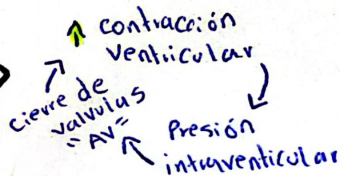 ↑ contracción
ventricular
cierre de
valvulas
"AV"
Presión
intraventicular